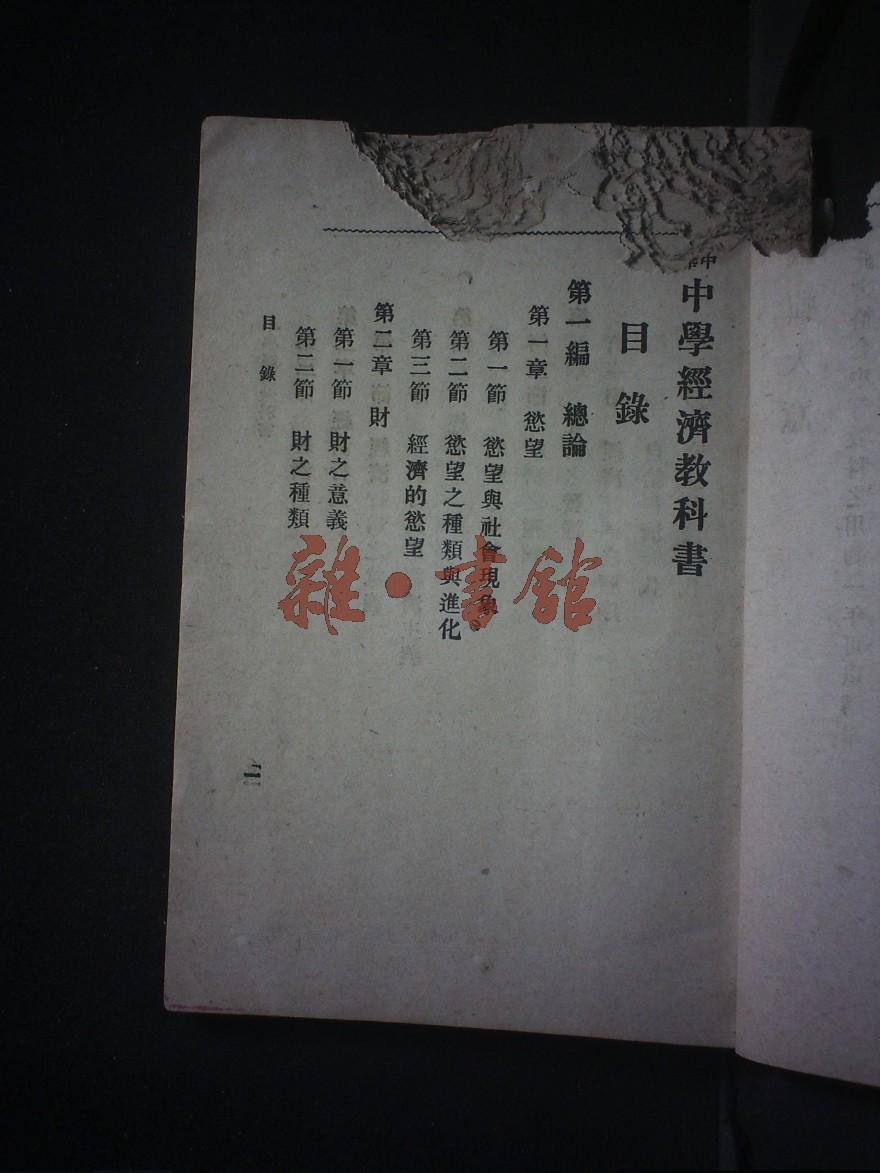 中華
中學經濟教科書
目錄
第一編 總論
第一章 慾望
第一節 慾望與社會現象
第二節 慾望之種類與進化
第三節 經濟的慾望
第二章 財
第一節 財之意義
第二節 財之種類
目錄
雜·書館